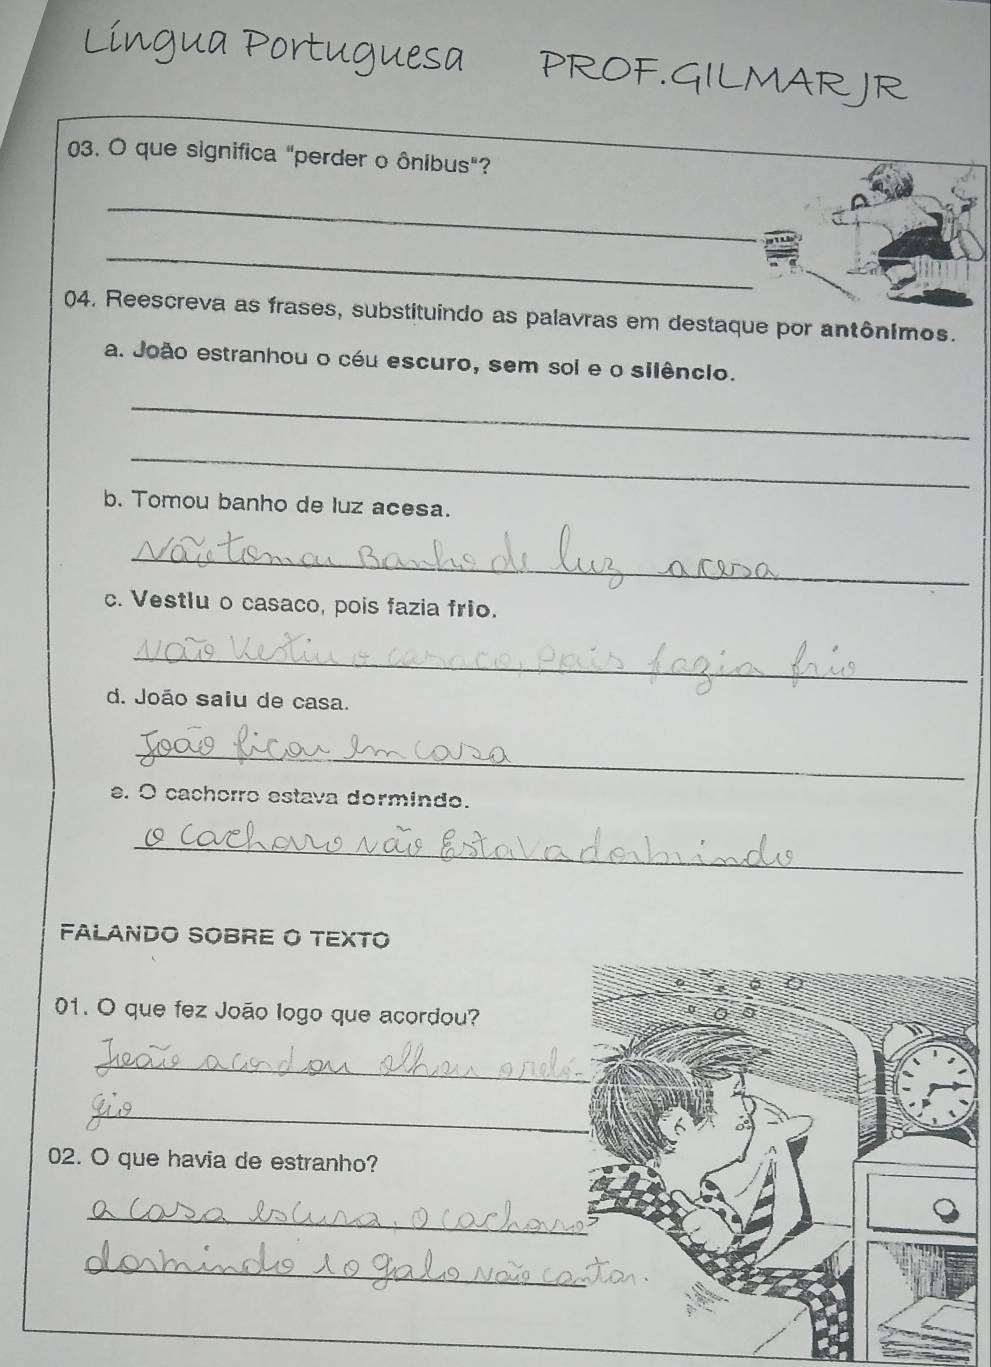 Língua Portuguesa PROF.GILMAR JR
03. O que significa "perder o ônibus"?
04. Reescreva as frases, substituindo as palavras em destaque por antônimos.
a. João estranhou o céu escuro, sem sol e o silêncio.
b. Tomou banho de luz acesa.
Não tomou Banho de luz acesa
c. Vestiu o casaco, pois fazia frio.
Não Vestiu o casaco, pois fazia frio
d. João saiu de casa.
João ficou em casa
e. O cachorro estava dormindo.
o cachorro não Estava dormindo
FALANDO SOBRE O TEXTO
01. O que fez João logo que acordou?
João acordou olhou o reló-
gio
02. O que havia de estranho?
a casa escura, o cachorro
dormindo e o galo não cantar.